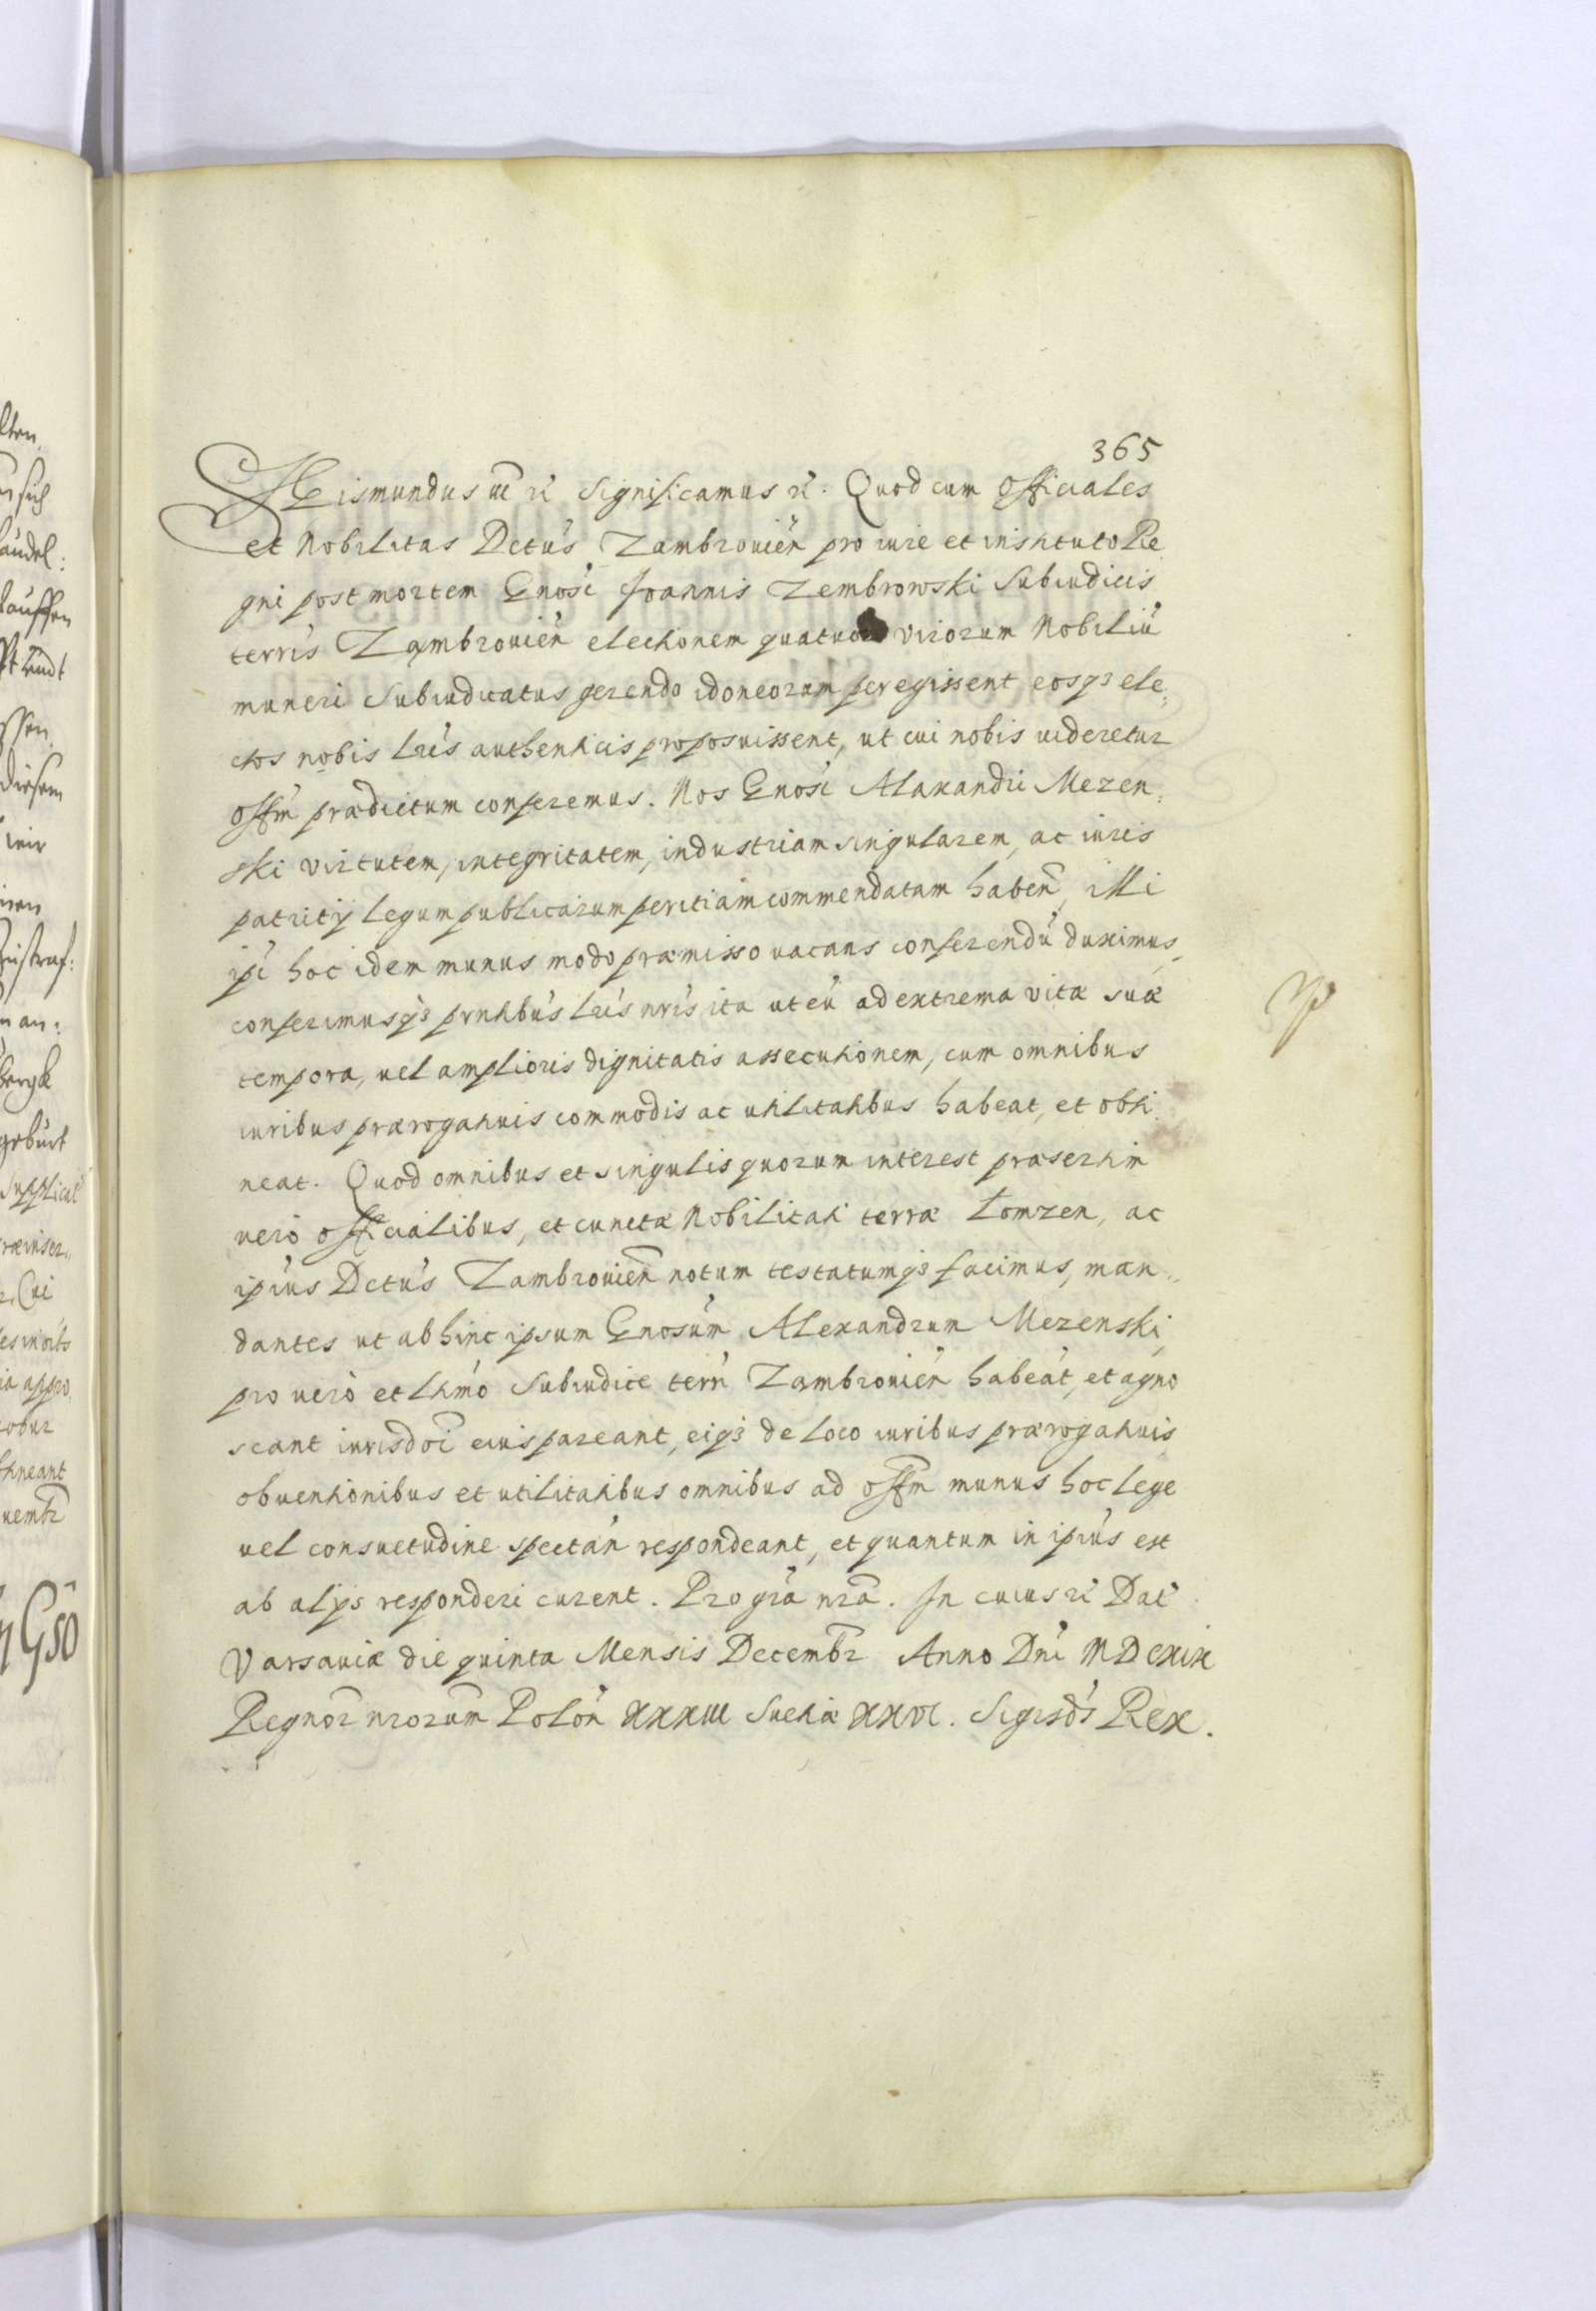 365
Sigismundus etc rc Significamus rc. Quod cum Officiales
et Nobilitas Dctus Zambrouien pro iure et instituto Re
gni post mortem Gnosi Joannis Zembrowski Subiudicis
terris Zambrouien electionem quatuor virorum Nobiliu
muneri Subiudicatus gerendo idoneorum peregissent eosq3 ele,
ctos nobis lris authenticis proposuissent, ut cui nobis uideretur
offm prædictum conferemus. Nos Gnosi Alaxandri Mezen,
ski virtutem, integritatem, industriam singularem, ac iuris
patrity legum publicarum peritiam commendatam haben, illi
ipi hoc idem munus modo præmisso uacans conferendu duximus,
conferimusq3 prntibus lris nris ita ut eu ad extrema vitæ suæ
tempora, uel amplioris dignitatis assecutionem, cum omnibus
iuribus prærogatiuis commodis ac utilitatibus habeat, et obti,
neat. Quod omnibus et singulis quorum interest præsertim
uero officialibus, et cunctæ Nobilitati terræ Łomzen, ac
ipius Dctus Zambrouien notum testatumq3 facimus, man,,
dantes ut ab hinc ipsum Gnosum Alexandrum Mezenski,
pro uero et ltimo Subiudice terrn Zambrouien habeat, et agno
scant iurisdoi eius pareant, eiq3 de loco iuribus prærogatiuis
obuentionibus et utilitatibus omnibus ad offm munus hoc lege
uel consuetudine spectan respondeant, et quantum in ipius est
ab alijs responderi curent. Pro gra nra. In cuius rc Dat
Varsauiæ die quinta Mensis Decembr Anno Dni MDCXIX
Regnor nrorum Polon XXXIII Suetiæ XXVI. Sigisds Rex.